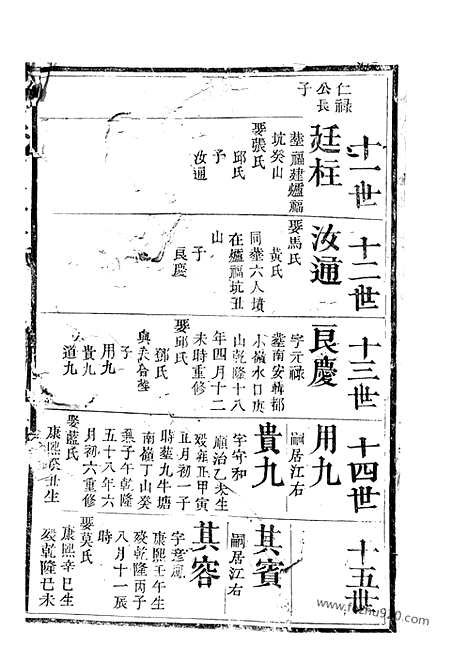 十一世
仁祿
公長
子
廷柱
塟福建爐福
坑癸山
娶張氏
邱氏
子
汝通
十二世
汝通
娶馬氏
黃氏
同塟六人墳
在爐福坑丑
山
子
良慶
十三世
良慶
字元祿
塟南安韓都
小嶺水口庚
山乾隆十八
年四月十二
未時重修
娶邱氏
鄧氏
與夫合塟
子
用九
貴九
道九
十四世
用九
嗣居江右
貴九
字守和
順治乙未生
歿雍正甲寅
五月初一子
時塟九牛塘
南嶺丁山癸
兼子午乾隆
五十八年六
月初六重修
娶藍氏
康熙癸丑生
十五世
其賓
嗣居江右
其容
字意風
康熙壬午生
歿乾隆丙子
八月十一辰
時
娶莫氏
康熙辛巳生
歿乾隆己未